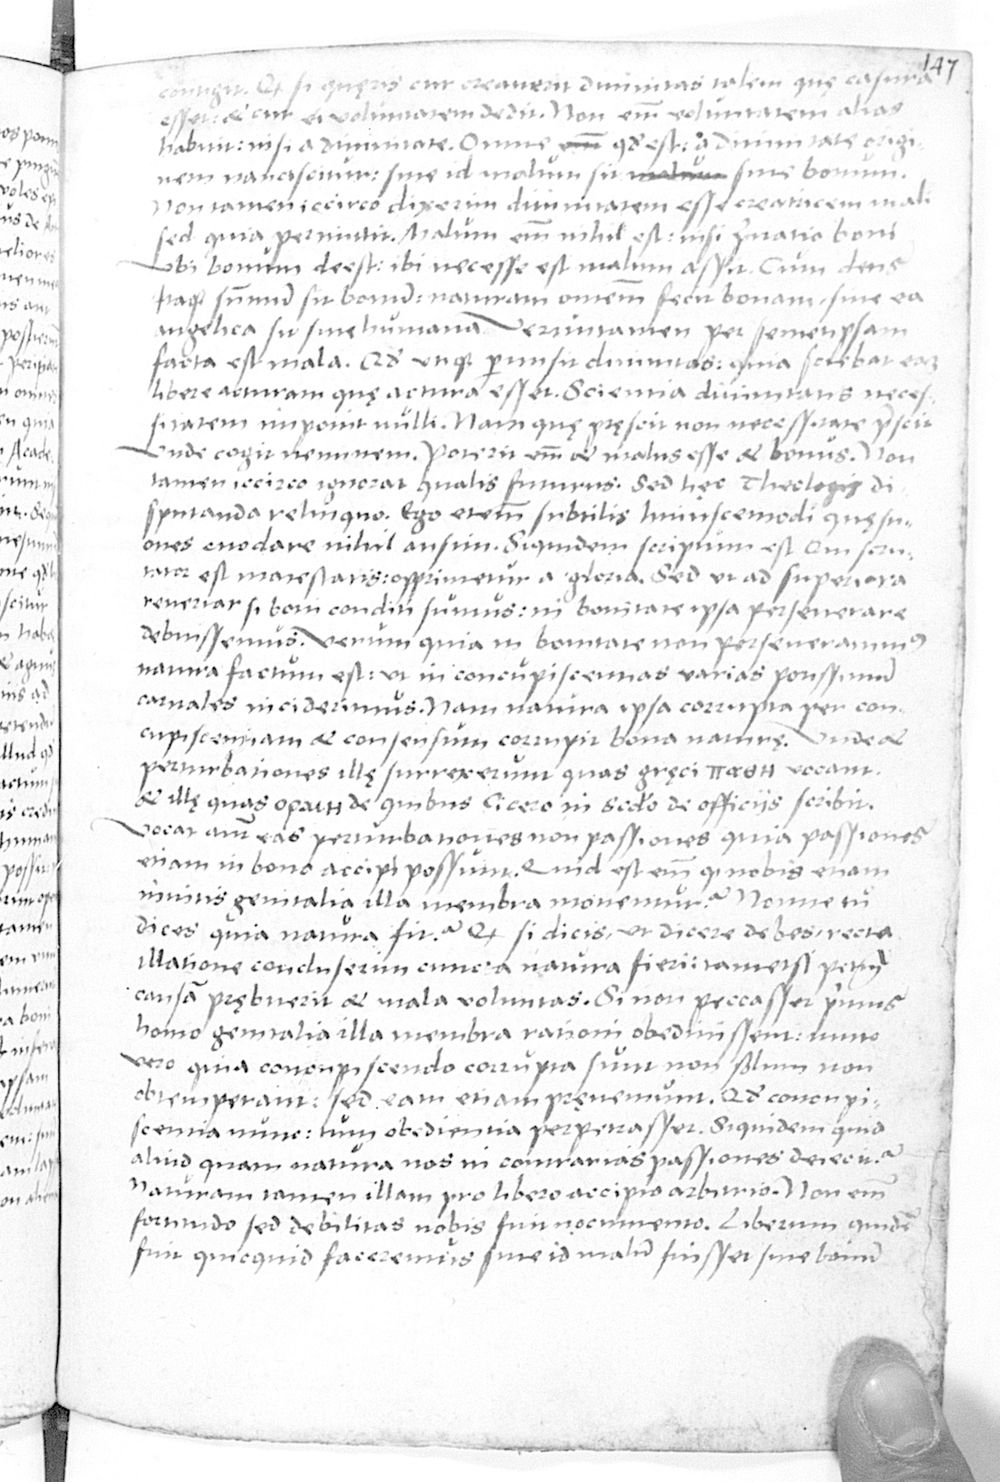 147
contigit. Et si quęris cur creaverit divinitas talem quę casura
esset: & cur ei voluntatem dedit. Non em̄ voluntatem alias
habuit: nisi a divinitate. Omne em̄ qd̄ est: a divinitate origi-
nem nanciscitur: sive id malum sit malum sive bonum.
Non tamen iccirco dixerim divinitatem esse creatricem mali
sed quia permittit. Malum em̄ nihil est: nisi p̄vatio boni
Vbi bonum deest: ibi necesse est malum assit. Cum deus
itaq̨ sūmū sit bonū: naturam omnem̄ fecit bonam, sive ea
angelica sit sive humana Veruntamen per semetipsam
facta est mala. Qd̄ utiq̨ p̄misit divinitas: quia sciebat eaȝ
libere acturam quę actura esset. Scientia divinitatis neces-
sitatem imponit nulli. Nam quę pręscit non necessitate p̄scit
Vnde cogit neminem. Poterit em̄ & malus esse & bonus. Non
tamen iccirco ignorat qualis futurus. Sed hęc Theologis di-
sputanda relinquo. Ego eteī subtilis huiuscemodi quęsti-
ones enodare nihil ausim. Siquidem scriptum est Qui scru-
tator est maiestatis: opprimetur a gloria. Sed ut ad superiora
revertar si boni conditi sumus: in bonitate ipsa perseverare
debuissemus. Verum quia in bonitate non perseveravimꝰ
natura factum est: ut in concupiscentias varias potissimū
carnales inciderimus. Nam natura ipsa corrupta per con-
cupiscentiam & consensum corrupit bona naturę. Vnde &
perturbationes illę surrexerunt quas gręci παθη vocant.
& illę quas ορμαι de quibus Cicero in scd̄o de officijs scribit.
Vocat aūt eas perturbationes non passiones quia passiones
etiam in bono accipi possunt. Quid est em̄ q nobis etiam
invitis genitalia illa membra moventur? Nonne tū
dices quia natura fit? Et si dicis, ut dicere debes, recta
illatione concluserim cuncta natura fieri: tametsi
causā prębuerit & mala voluntas. Si non peccasset p̄mus
homo genitalia illa membra rationi obedivissent: nunc
vero quia concupiscendo corrupta sunt non solum non
obtemperant: sed eam etiam pręveniunt. Qd̄ concupi-
scentia nunc: tum obedientia perpetrasset. Siquidem quid
aliud quam natura nos in contrarias passiones deiecit?
Naturam tamen illam pro libero accipio arbitrio. Non em̄
fortitudo sed debilitas nobis fuit nocumento. Liberum quidē
fuit quicquid faceremus sive id malū fuisset sive bonū